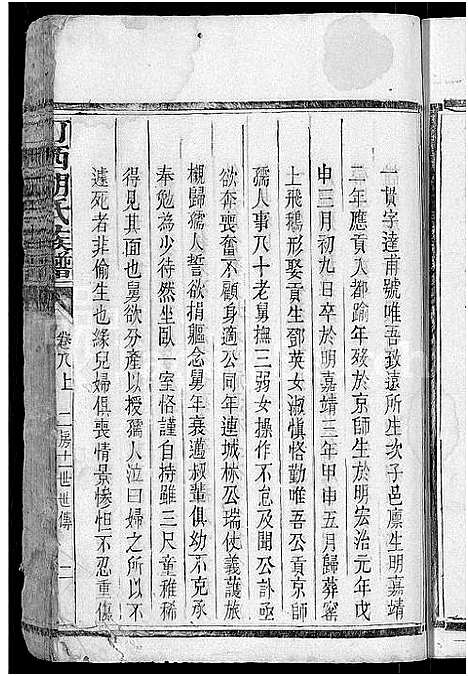 一貫字達甫號唯吾致遠所生次子邑廪生明嘉靖
二年應貢入都踰年歿於京師生於明宏治元年戊
申三月初九日卒於明嘉靖三年甲申五月歸葬窰
上飛鵝形娶貢生鄧英女淑慎恪勤唯吾公貢京師
孺人事八十老舅撫三弱女操作不怠及聞公訃亟
欲奔喪奮不顧身適公同年連城林公瑞伎義護旅
櫬歸孺人誓欲捐軀念舅年衰邁叔輩俱幼不克承
奉勉為少待然坐臥一室恪謹自持雖三尺童稚稀
得見其面也舅欲分產以授孺人泣曰婦之所以不
遽死者非偷生也緣兒婦俱喪情景慘怛不忍重傷
西胡氏族譜
卷八上
二房十一世世傳
二